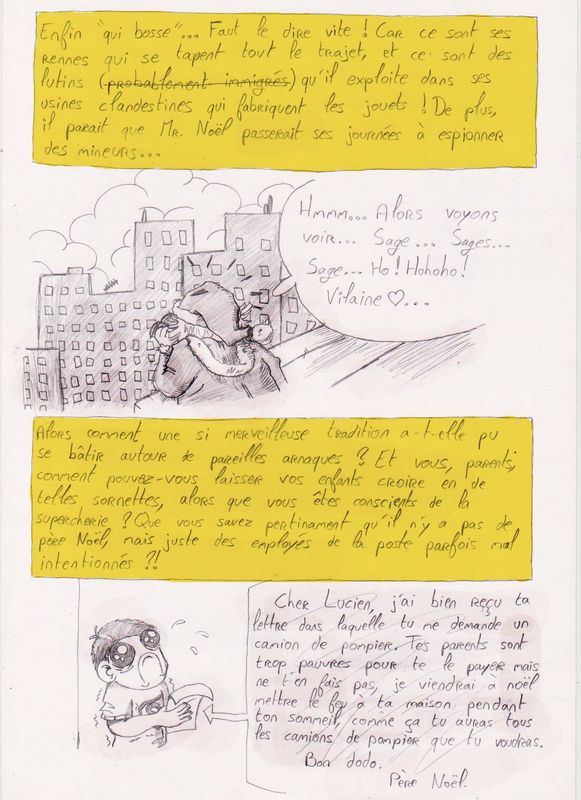 Enfin "qui bosse"... Faut le dire vite ! Car ce sont ses
rennes qui se tapent tout le trajet, et ce sont des
lutins (probablement immigrés) qu'il exploite dans ses
usines clandestines qui fabriquent les jouets ! De plus,
il parait que Mr. Noël passerait ses journées à espionner
des mineurs...
Hmmm... Alors voyons
voir... Sage... Sages...
Sage... Ho ! Hohoho !
Vilaine ♡...
Alors comment une si merveilleuse tradition a-t-elle pu
se bâtir autour de pareilles arnaques ? Et vous, parents,
comment pouvez-vous laisser vos enfants croire en de
telles sornettes, alors que vous êtes conscients de la
supercherie ? Que vous savez pertinament qu'il n'y a pas de
père Noël, mais juste des employés de la poste parfois mal
intentionnés ?!
Cher Lucien, j'ai bien reçu ta
lettre dans laquelle tu me demande un
camion de pompier. Tes parents sont
trop pauvres pour te le payer mais
ne t'en fais pas, je viendrai à noël
mettre le feu à ta maison pendant
ton sommeil, comme ça tu auras tous
les camions de pompier que tu voudras.
Bon dodo.
Père Noël.